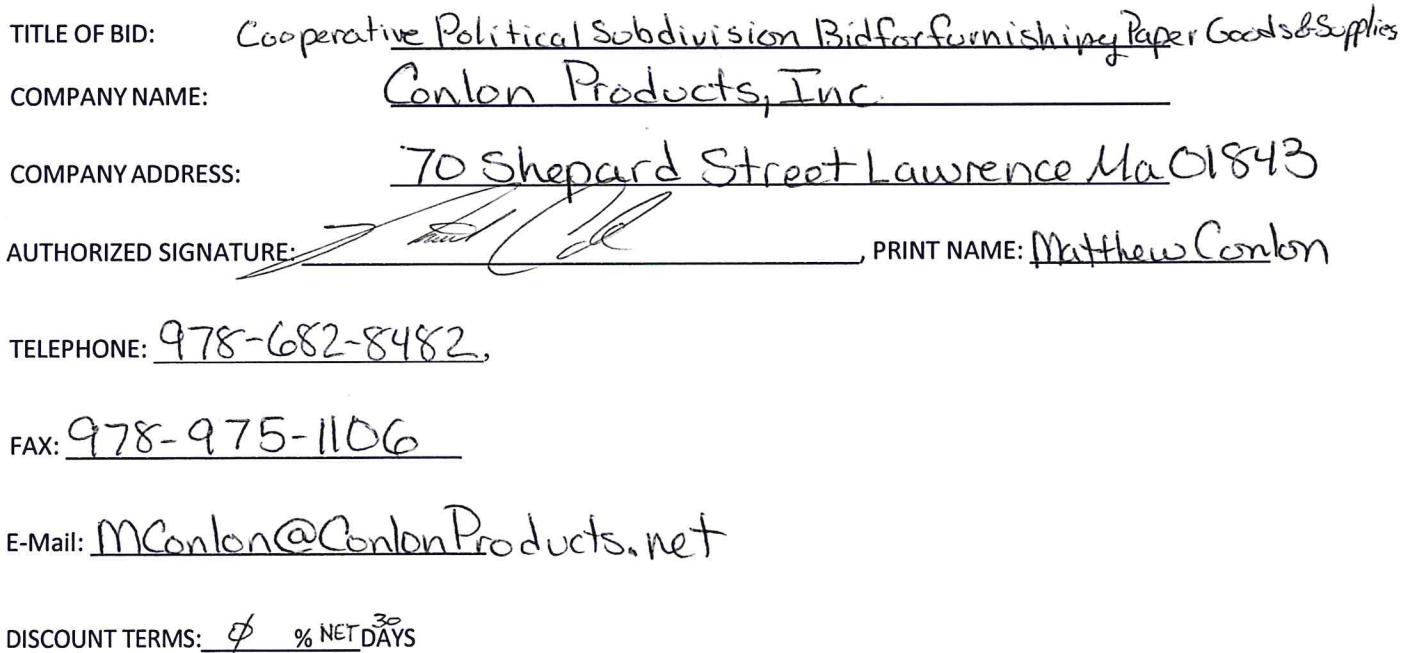 TITLE OF BID: Cooperative Political Subdivision Bid for furnishing Paper Goods & Supplies
COMPANY NAME: Conlon Products, Inc.
COMPANY ADDRESS: 70 Shepard Street Lawrence Ma 01843
AUTHORIZED SIGNATURE: , PRINT NAME: Matthew Conlon
TELEPHONE: 978-682-8482,
FAX: 978-975-1106
E-Mail: MConlon@ConlonProducts.net
DISCOUNT TERMS: Ø % NET 30 DAYS